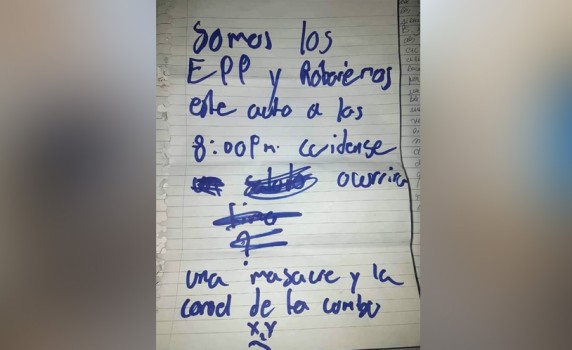 Somos los
EPP y Robaremos
este auto a las
8:00Pm. cuidense
ocurrira
una masacre y la
de la combu
X,Y